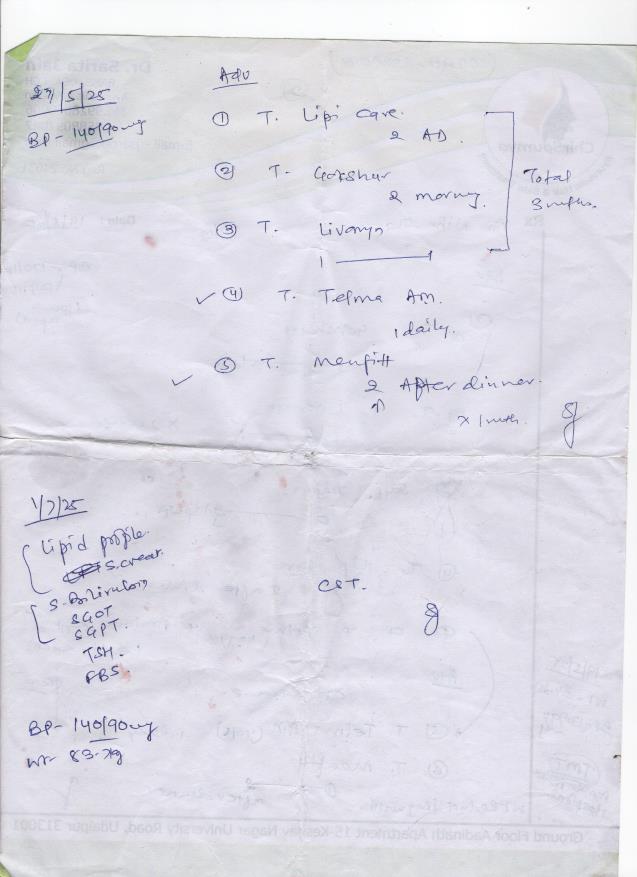 Adv
27/5/25
BP - 140/90 mg
① T. Lipi care.
2 AD.
② T. Gokshur
2 morning.
③ T.
1 ——— 1
Total
3 mths.
✓ ④ T. Telma Am.
1 daily.
✓ ⑤ T.
2 After dinner.
x 1 mth.
1/7/25
Lipid profile.
S. creat.
S. Bilirubin
SGOT
SGPT.
TSH.
FBS.
CST.
BP- 140/90 mg
wt- 83 kg
Ground Floor Aadinath Apartment 15-Keshav Nagar University Road, Udaipur 313001